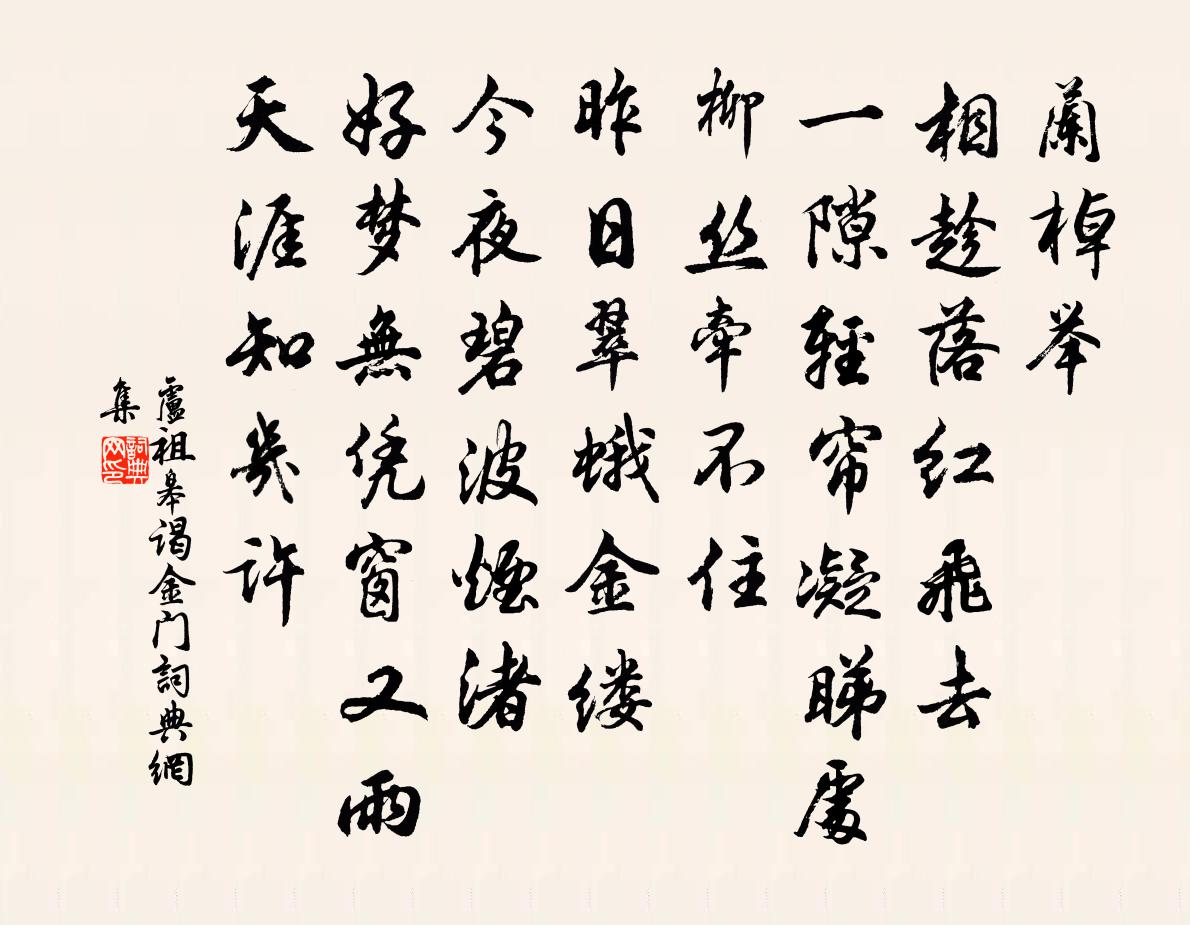 蘭棹举
相趁落红飛去
一隙輕帘凝睇處
柳丝牵不住
昨日翠蛾金缕
今夜碧波煙渚
好梦無凭窗又雨
天涯知幾许
盧祖皋谒金门詞典網
集
詞典网印